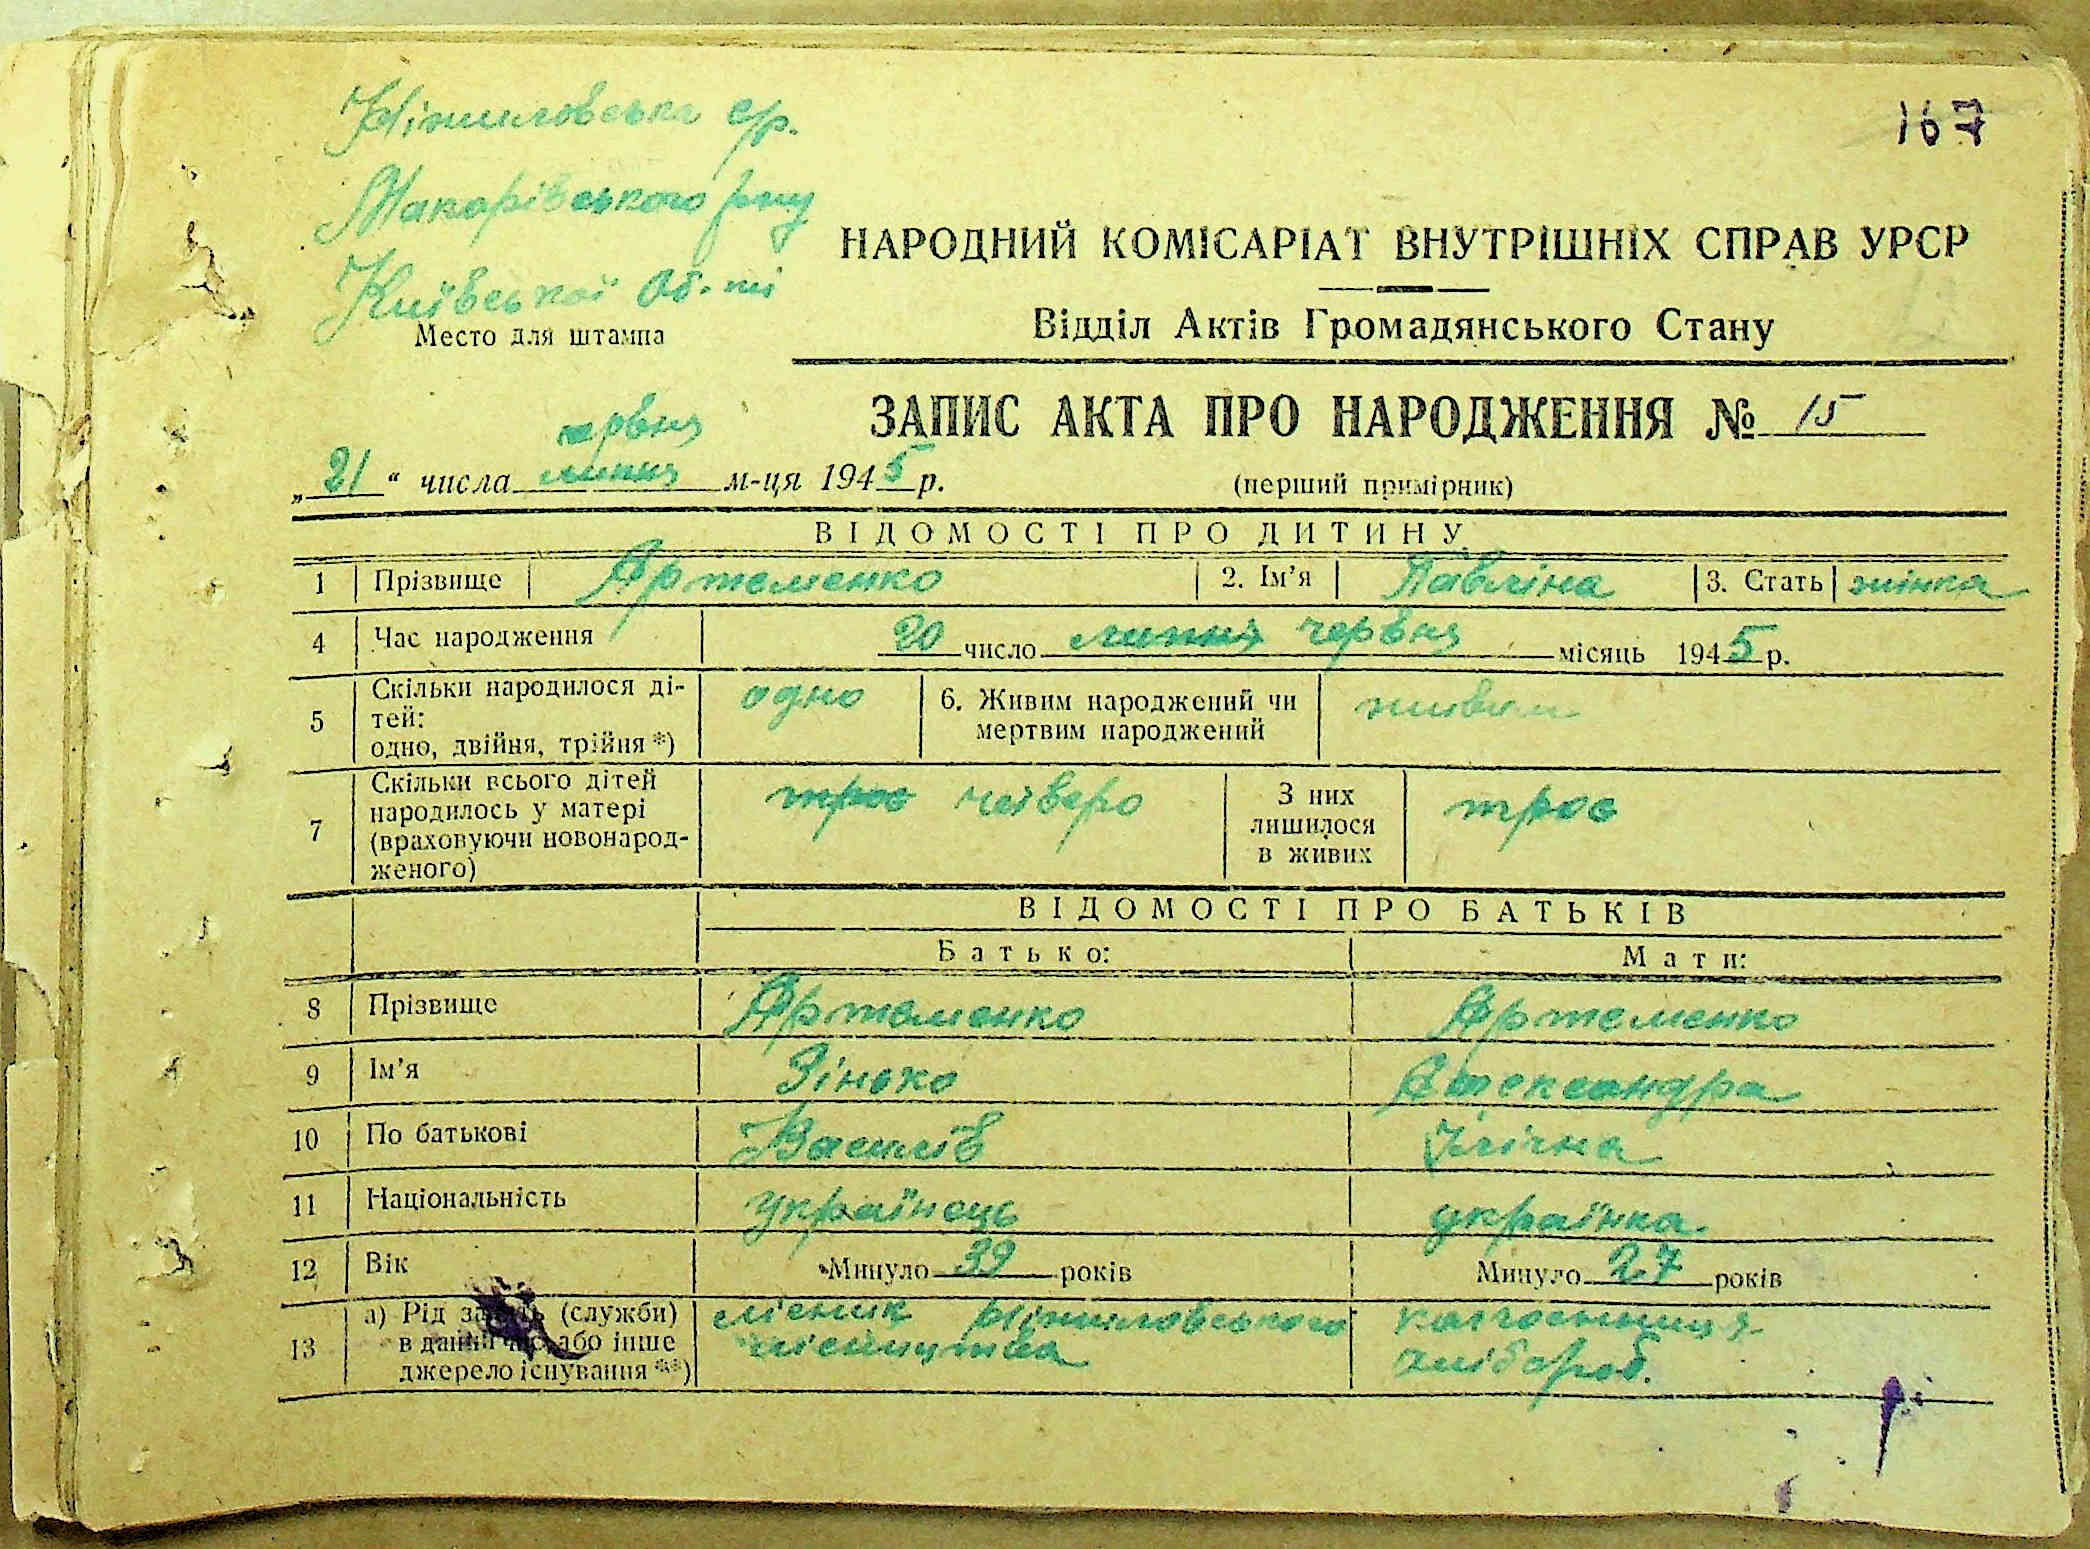 Ніжиловська с/р.
167
Макарівського р-ну
Київської об-ті
Место для штампа
НАРОДНИЙ КОМІСАРІАТ ВНУТРІШНІХ СПРАВ УРСР
Відділ Актів Громадянського Стану
ЗАПИС АКТА ПРО НАРОДЖЕННЯ № 15
червня
„21“ числа липня м-ця 1945 р.
(перший примірник)
ВІДОМОСТІ ПРО ДИТИНУ
1 Прізвище Артеменко 2. Ім'я Павліна 3. Стать жінка
4 Час народження 20 число липня червня місяць 1945 р.
5 Скільки народилося ді-
тей:
одно, двійня, трійня *) одно 6. Живим народжений чи
мертвим народжений живим
7 Скільки всього дітей
народилось у матері
(враховуючи новонарод-
женого) троє четверо З них
лишилося
в живих троє
ВІДОМОСТІ ПРО БАТЬКІВ
Батько: Мати:
8 Прізвище Артеменко Артеменко
9 Ім'я Зінько Александра
10 По батькові Василів Ілічна
11 Національність українець українка.
12 Вік Минуло 39 років Минуло 27 років
13 а) Рід занять (служби)
в даний час або інше
джерело існування **) лісник Ніжиловського
лісництва колгоспниця
хлібороб.